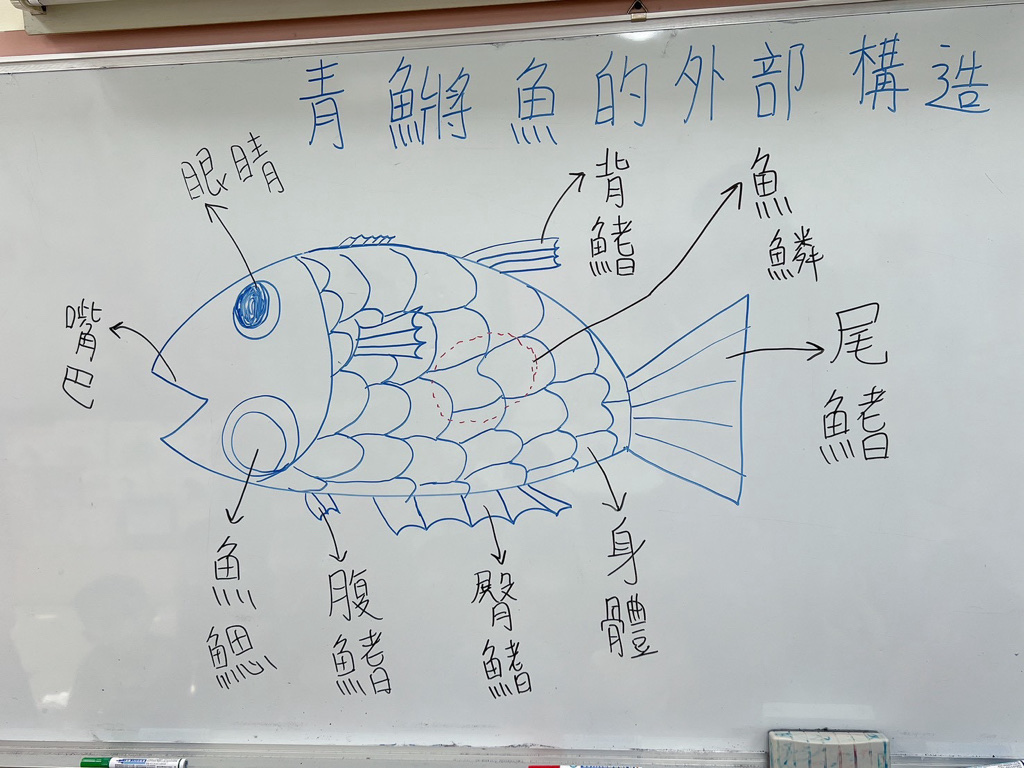 青鱂魚的外部構造
眼睛
背鰭
魚鱗
嘴巴
尾鰭
魚鰓
腹鰭
臀鰭
身體